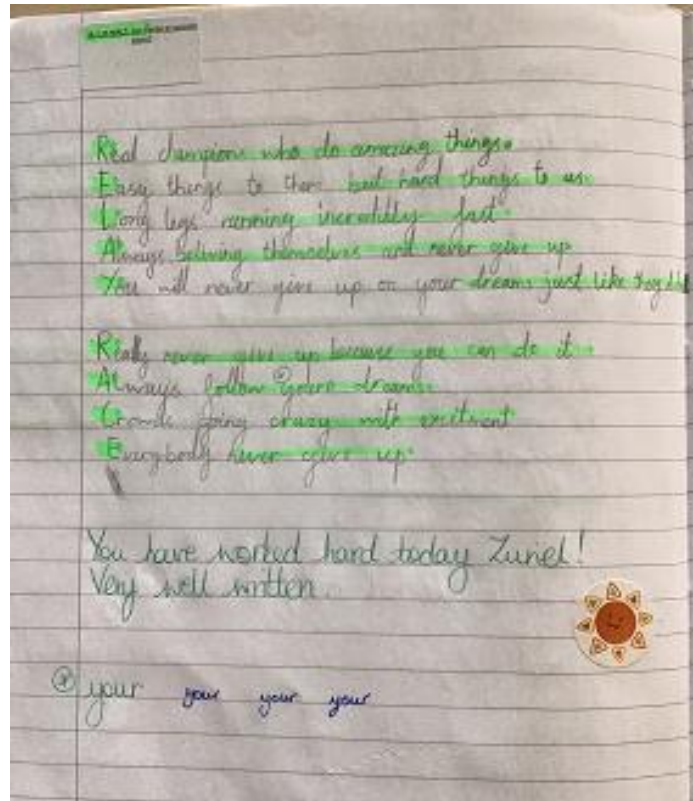 Real champions who do amazing things.
Easy things to them but hard things to us.
Long legs running incredibly fast.
Always beliving themselves and never give up
You will never give up on your dreams just like they did
Really never give up because you can do it.
Always follow youre dreams.
Crowds going crazy with excitment
Everybody never give up.
You have worked hard today Zuriel!
Very well written.
your your your your